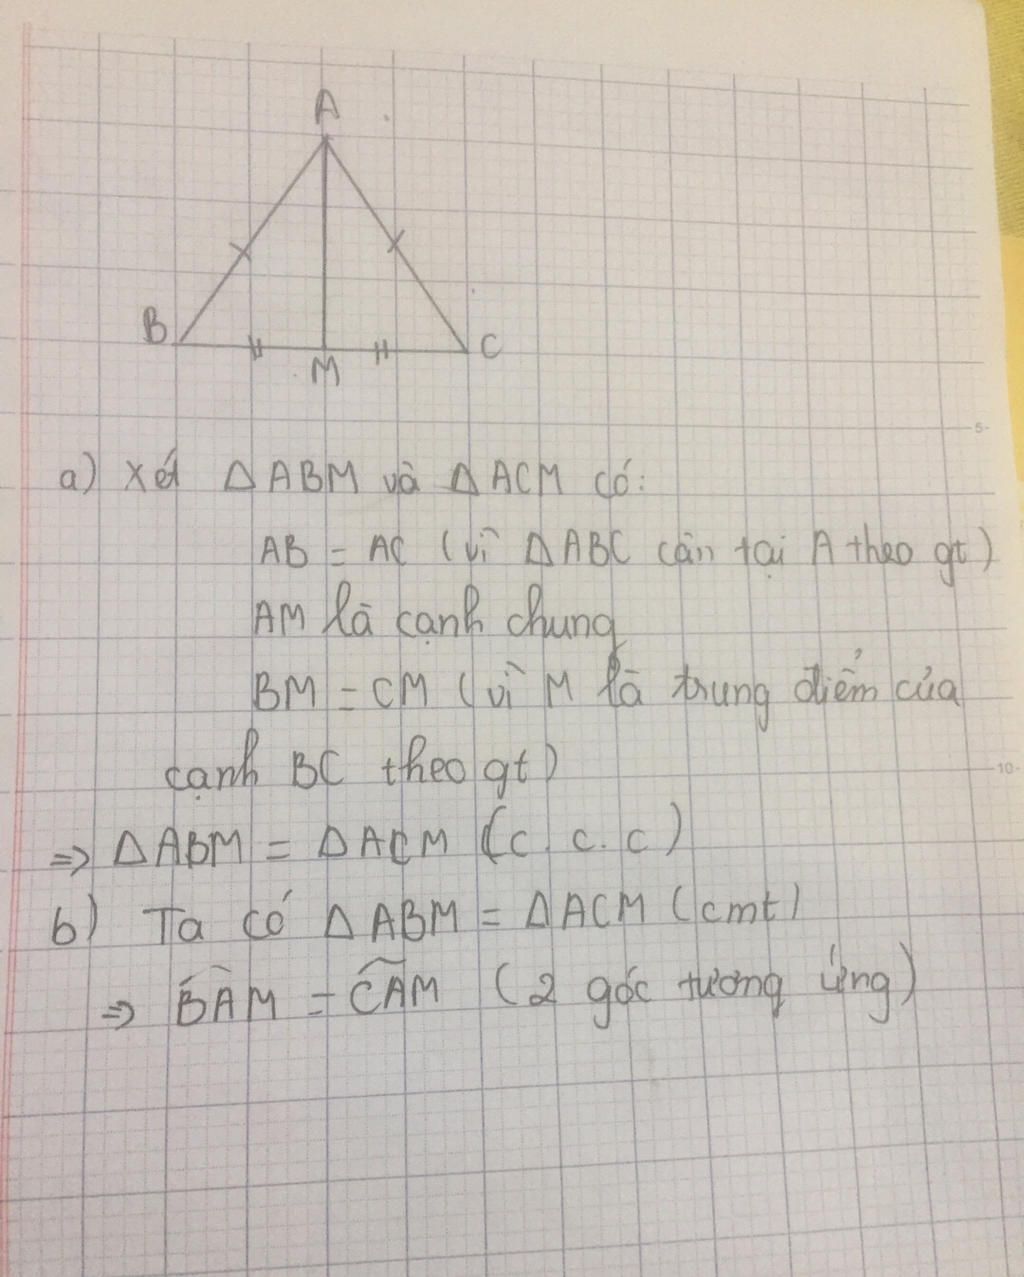 A
B
M
C
5
a) Xét ΔABM và ΔACM có:
AB = AC (vì ΔABC cân tại A theo gt)
AM là cạnh chung
BM = CM (vì M là trung điểm của
cạnh BC theo gt)
10
=> ΔABM = ΔACM (c.c.c)
b) Ta có ΔABM = ΔACM (cmt)
=> BAM = CAM (2 góc tương ứng)